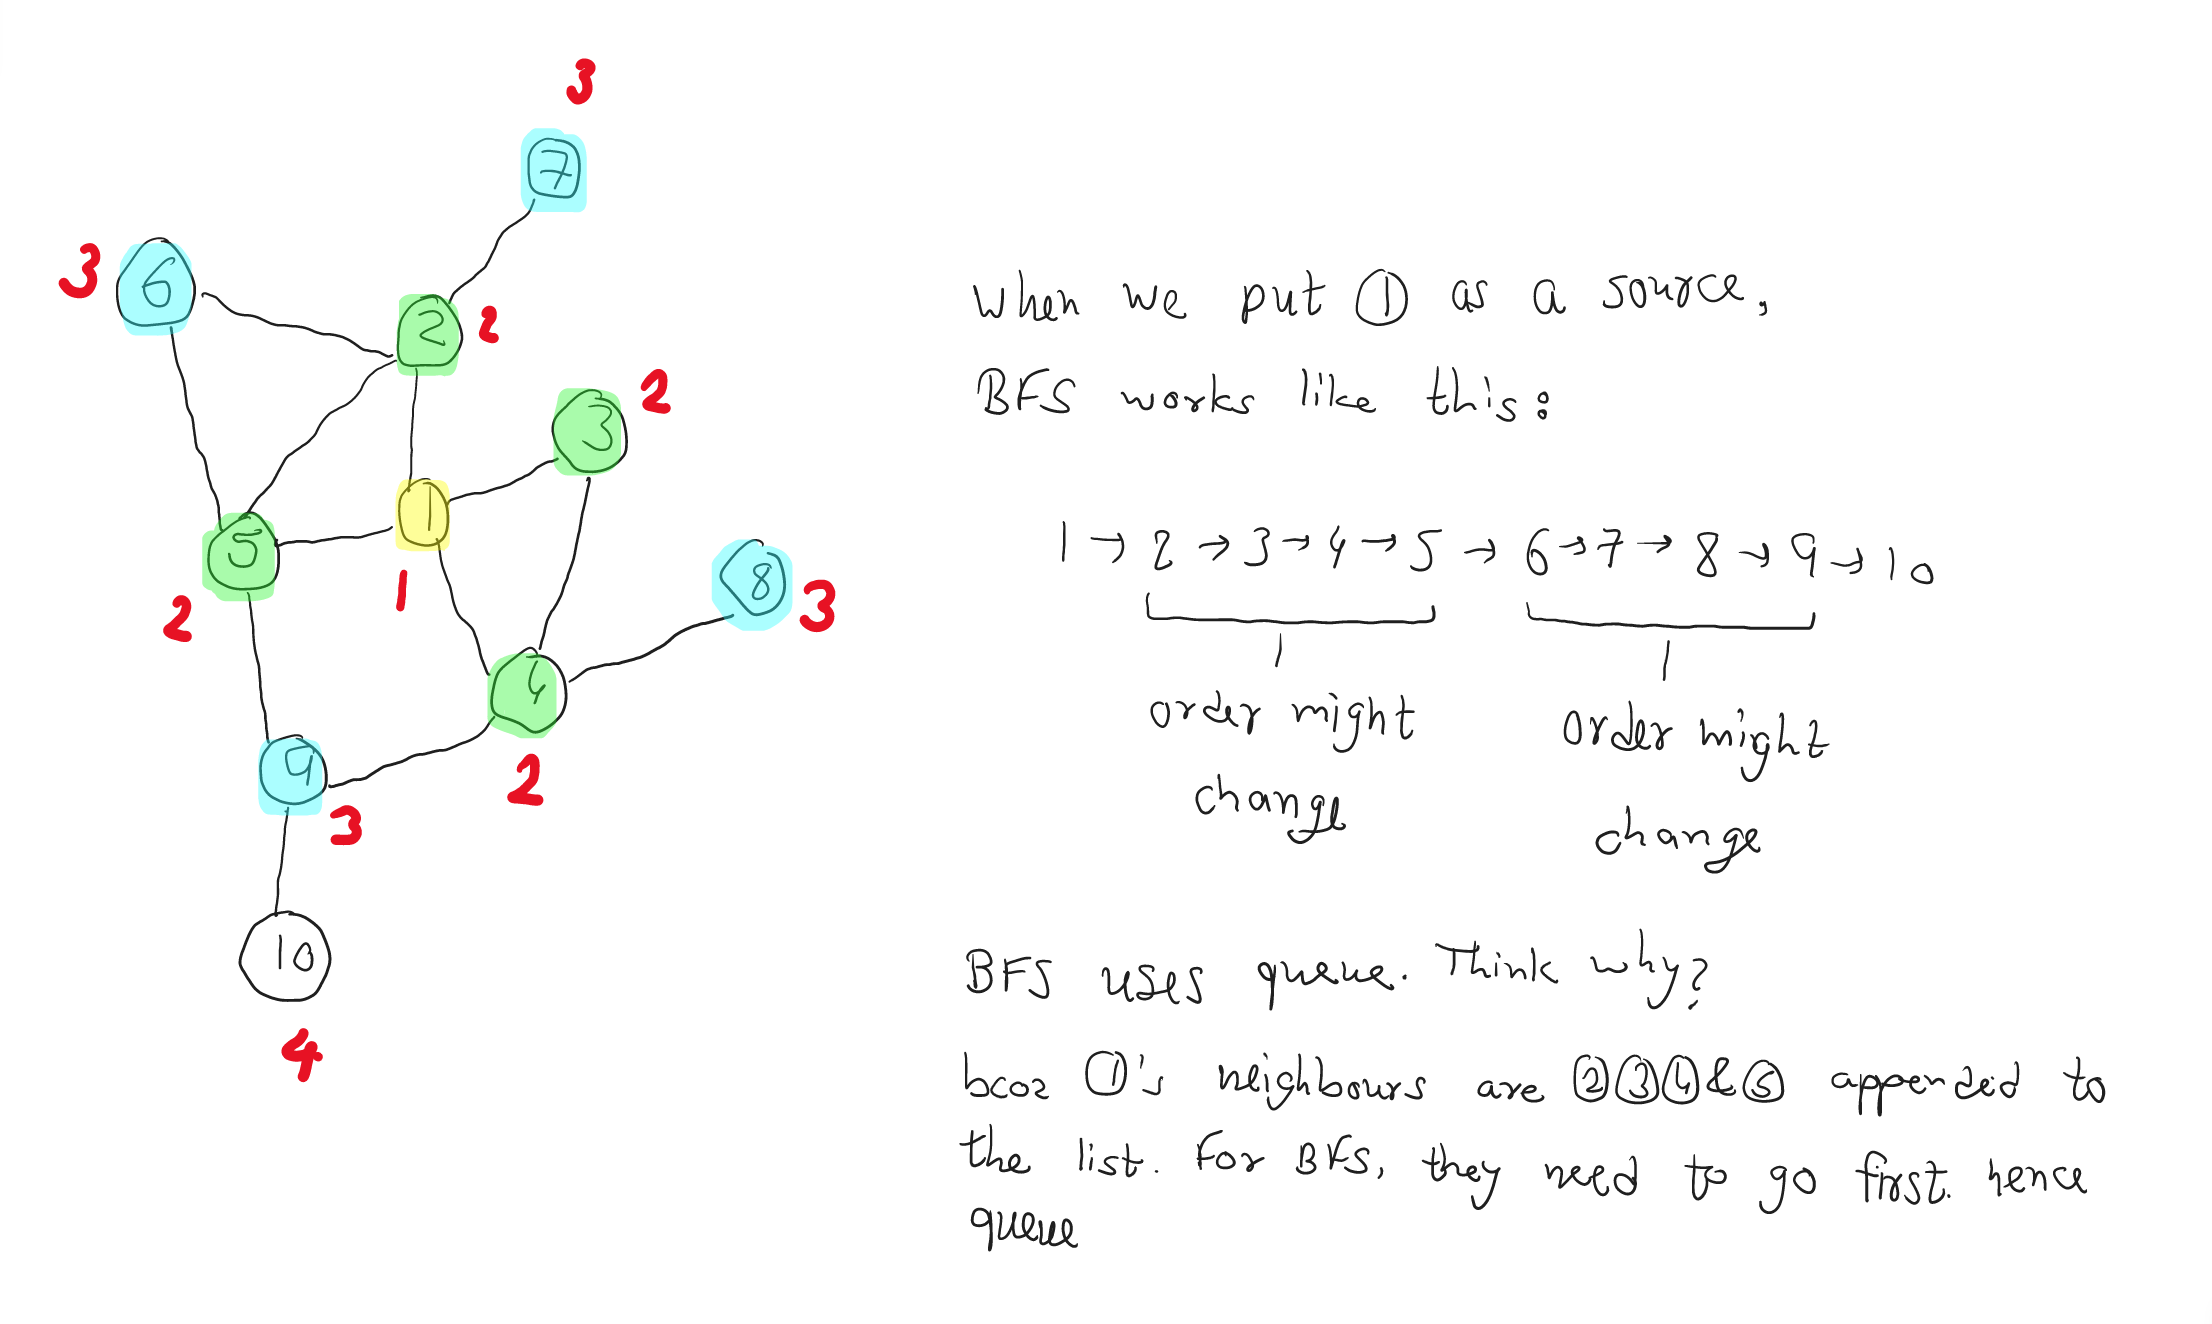 3
7
3
6
2
2
2
3
5
1
8
3
1
2
4
9
2
3
10
4
When we put ① as a source,
BFS works like this:
1 → 2 → 3 → 4 → 5 → 6 → 7 → 8 → 9 → 10
order might
change
order might
change
BFS uses queue. Think why?
bcoz ①'s neighbours are ②③④&⑤ appended to
the list. For BFS, they need to go first. hence
queue